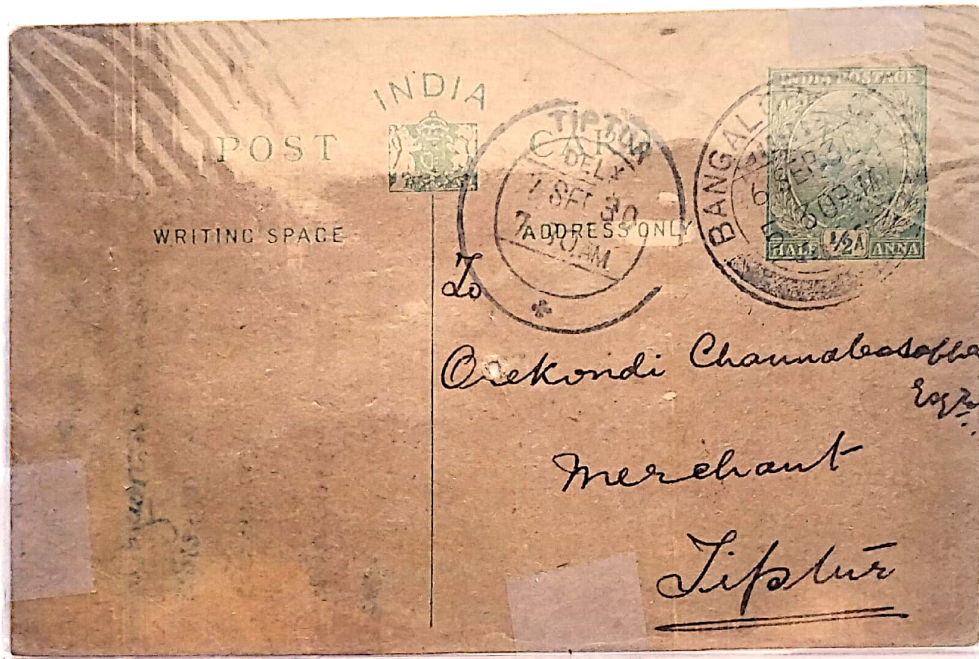 INDIA
POST CARD
WRITING SPACE
ADDRESS ONLY
TIPTUR
DEL
7 SEP 30
7 30 AM
BANGAL
6 SEP 30
INDIA POSTAGE
HALF ½A ANNA
To
Orekondi Channabasappa
Esqr.
Merchant
Tiptur